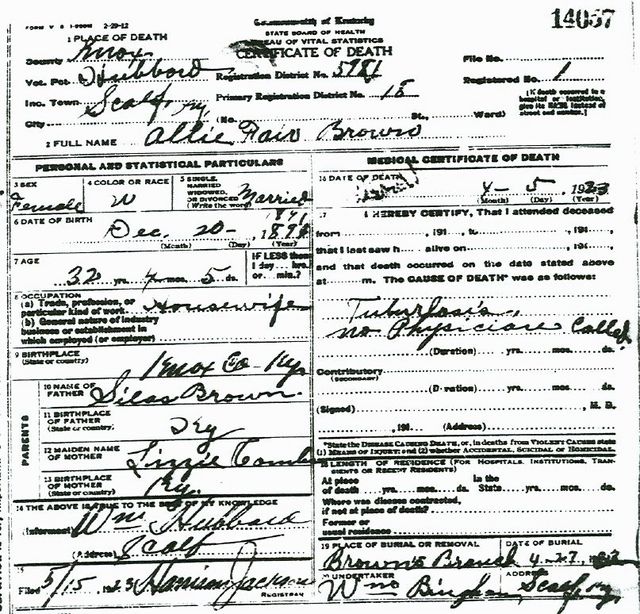 FORM V. S. 2-29-12
Commonwealth of Kentucky
14057
STATE BOARD OF HEALTH
BUREAU OF VITAL STATISTICS
CERTIFICATE OF DEATH
1 PLACE OF DEATH
County Knox
Vot. Pct. Hubbord
Registration District No. 5981
File No.
Inc. Town Scalf, Ky,
Primary Registration District No. 18
Registered No. 1
City (No. St., Ward)
[If death occurred in a hospital or institution, give its NAME instead of street and number.]
2 FULL NAME Allie Fair Brown
PERSONAL AND STATISTICAL PARTICULARS
3 SEX Female
4 COLOR OR RACE W
5 SINGLE, MARRIED WIDOWED, OR DIVORCED (Write the word) Married
6 DATE OF BIRTH Dec. 20-
(Month) (Day) (Year)
7 AGE
32 yrs. 4 mos. 5 ds.
IF LESS than 1 day hrs. or min.?
8 OCCUPATION
(a) Trade, profession, or particular kind of work Housewife
(b) General nature of industry business or establishment in which employed (or employer)
9 BIRTHPLACE
(State or country) Knox Co-Ky.
PARENTS
10 NAME OF FATHER Silas Brown
11 BIRTHPLACE OF FATHER
(State or country) Ky
12 MAIDEN NAME OF MOTHER Lizzie
13 BIRTHPLACE OF MOTHER
(State or country) Ky.
14 THE ABOVE IS TRUE TO THE BEST OF MY KNOWLEDGE
(Informant) Wm Hubbard
(Address) Scalf
15
Filed 5/15 1923 Harrison Jackson
REGISTRAR
MEDICAL CERTIFICATE OF DEATH
16 DATE OF DEATH
4- 5 1923
(Month) (Day) (Year)
17 I HEREBY CERTIFY, That I attended deceased
from , 191 , to , 191 ,
that I last saw h alive on , 191 ,
and that death occurred on the date stated above
at m. The CAUSE OF DEATH* was as follows:
Tuburlosis
no Physician Called
(Duration) yrs. mos. ds.
Contributory
(SECONDARY)
(Duration) yrs. mos. ds.
(Signed) M. D.
, 191 (Address)
*State the DISEASE CAUSING DEATH, or, in deaths from VIOLENT CAUSES state (1) MEANS OF INJURY; and (2) whether ACCIDENTAL, SUICIDAL or HOMICIDAL.
18 LENGTH OF RESIDENCE (FOR HOSPITALS, INSTITUTIONS, TRANSIENTS OR RECENT RESIDENTS)
At place of death yrs. mos. ds. In the State yrs. mos. ds.
Where was disease contracted, if not at place of death?
Former or usual residence
19 PLACE OF BURIAL OR REMOVAL
DATE OF BURIAL
Browns Branch 4-27,
20 UNDERTAKER
ADDRESS
Wm Bingham Scalf, Ky